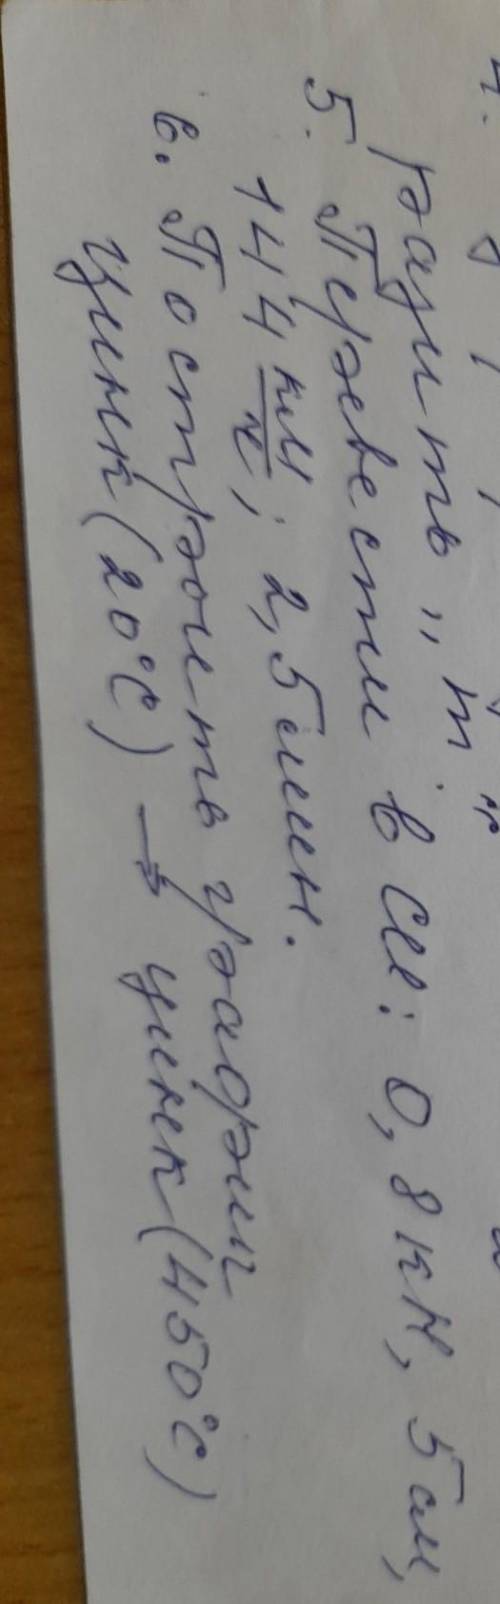 4.
разить „m"
5. Перевести в си: 0,8 кН, 5 см,
144 км/ч; 2,5 мин.
6. Построить график
цинк (20°С) → цинк (450°С)